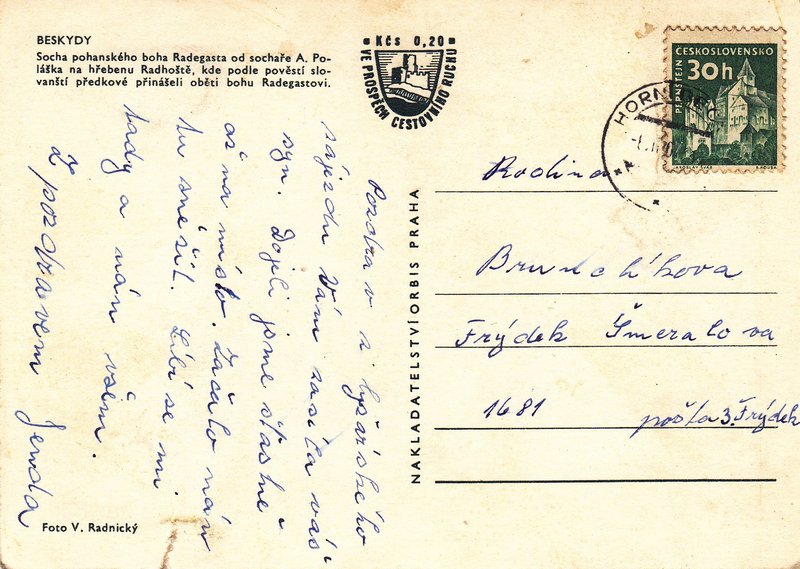 BESKYDY
Socha pohanského boha Radegasta od sochaře A. Po-
láška na hřebenu Radhoště, kde podle pověstí slo-
vanští předkové přinášeli oběti bohu Radegastovi.
Kčs 0,20
VE PROSPĚCH CESTOVNÍHO RUCHU
ČESKOSLOVENSKO
30h
PERNŠTEJN
JAROSLAV ŠVÁB
HORNÍ
Pozdrav z lyžařského
zájezdu Vám zasílá váš
syn. Dojeli jsme šťastně
až na místo. Začalo nám
tu sněžit. Líbí se mi
tady a nám všem.
Z pozdravem Jenda
NAKLADATELSTVÍ ORBIS PRAHA
Rodina
Brunclíkova
Frýdek Šmeralova
1681
pošta 3. Frýdek
Foto V. Radnický